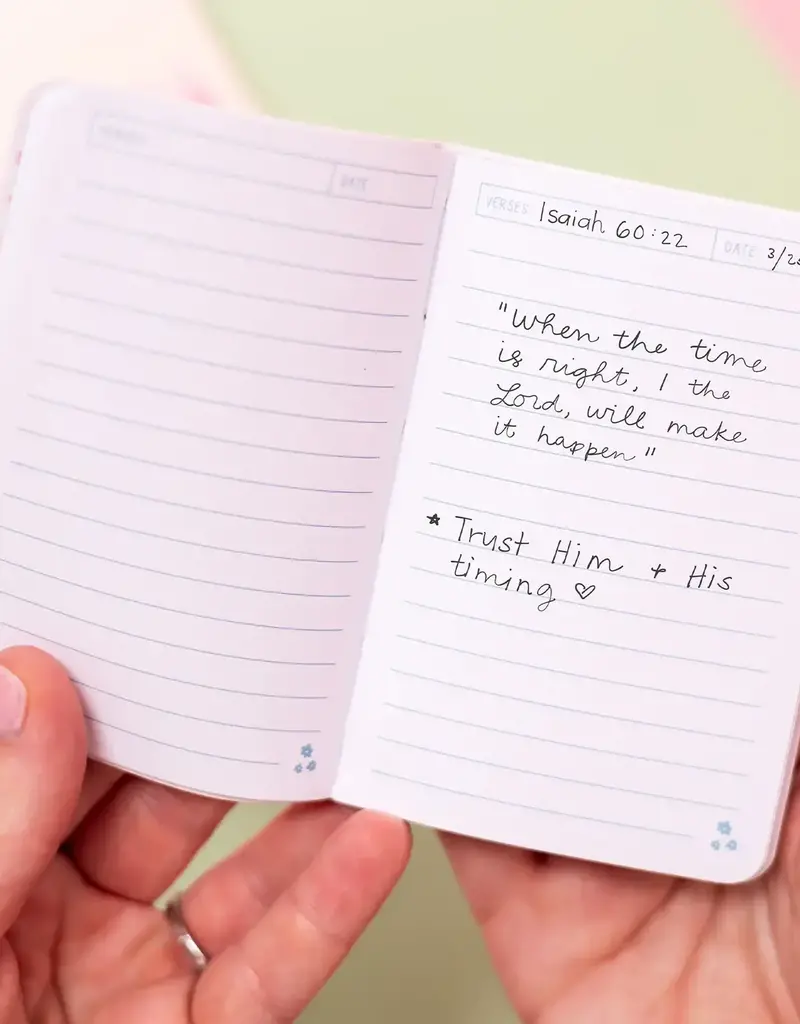 DATE
VERSES Isaiah 60:22 DATE
"When the time
is right, I the
Lord, will make
it happen"
* Trust Him + His
timing ♡